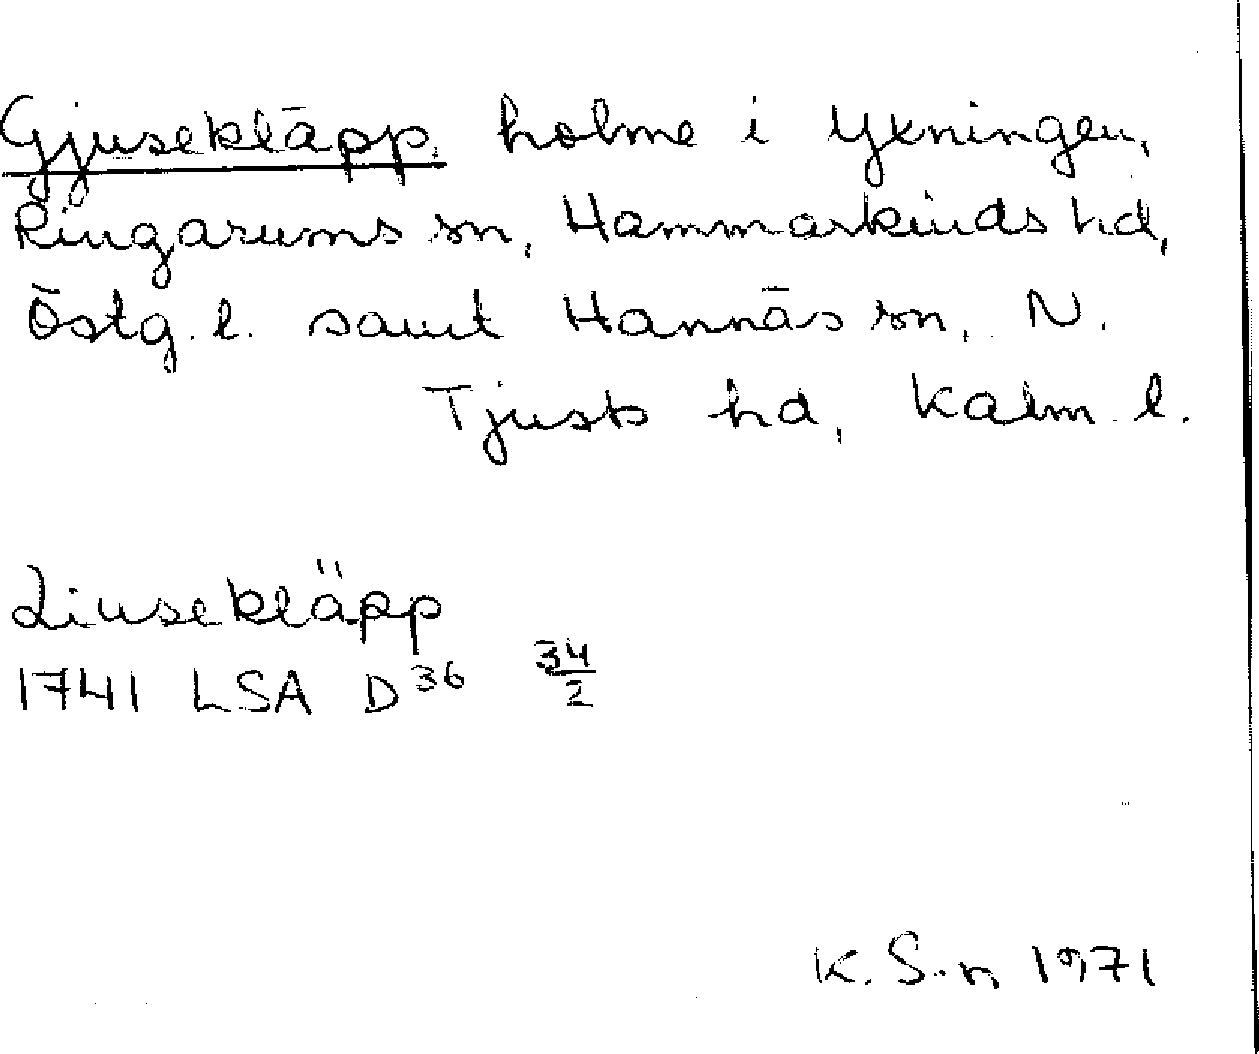 Gjusekläpp, holme i Yxningen,
Ringarums sn, Hammarkinds hd,
Östg. l. samt Hannäs sn, N.
Tjusts hd, Kalm. l.
Liusekläpp
1741 LSA D³⁶ 34/2
K. S-n 1971